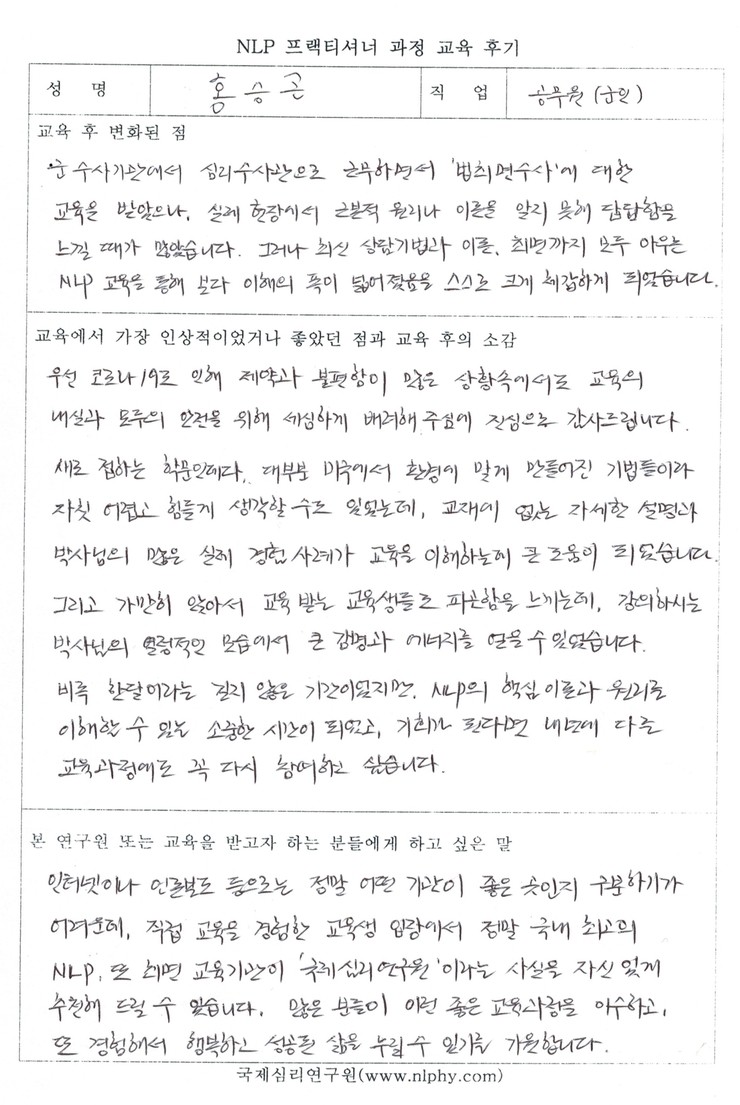 NLP 프랙티셔너 과정 교육 후기
성 명 홍승곤 직 업 공무원 (군인)
교육 후 변화된 점
군 수사기관에서 심리수사관으로 근무하면서 '법최면수사'에 대한
교육을 받았으나, 실제 현장에서 근본적 원리나 이론을 알지 못해 답답함을
느낄 때가 많았습니다. 그러나 최신 상담기법과 이론, 최면까지 모두 아우르는
NLP 교육을 통해 보다 이해의 폭이 넓어졌음을 스스로 크게 체감하게 되었습니다.
교육에서 가장 인상적이었거나 좋았던 점과 교육 후의 소감
우선 코로나19로 인해 제약과 불편함이 많은 상황속에서도 교육의
내실과 모두의 안전을 위해 세심하게 배려해 주심에 진심으로 감사드립니다.
새로 접하는 학문인데다, 대부분 미국에서 환경에 맞게 만들어진 기법들이라
자칫 어렵고 힘들게 생각할 수도 있었는데, 교재에 없는 자세한 설명과
박사님의 많은 실제 경험 사례가 교육을 이해하는데 큰 도움이 되었습니다.
그리고 가만히 앉아서 교육 받는 교육생들도 피곤함을 느끼는데, 강의하시는
박사님의 열정적인 모습에서 큰 감명과 에너지를 얻을 수 있었습니다.
비록 한달이라는 길지 않은 기간이었지만, NLP의 핵심 이론과 원리를
이해할 수 있는 소중한 시간이 되었고, 기회가 된다면 내년에 다른
교육과정에도 꼭 다시 참여하고 싶습니다.
본 연구원 또는 교육을 받고자 하는 분들에게 하고 싶은 말
인터넷이나 언론보도 등으로는 정말 어떤 기관이 좋은 곳인지 구분하기가
어려운데, 직접 교육을 경험한 교육생 입장에서 정말 국내 최고의
NLP, 또 최면 교육기관이 '국제심리연구원'이라는 사실을 자신 있게
추천해 드릴 수 있습니다. 많은 분들이 이런 좋은 교육과정을 이수하고,
또 경험해서 행복하고 성공된 삶을 누릴 수 있기를 기원합니다.
국제심리연구원(www.nlphy.com)